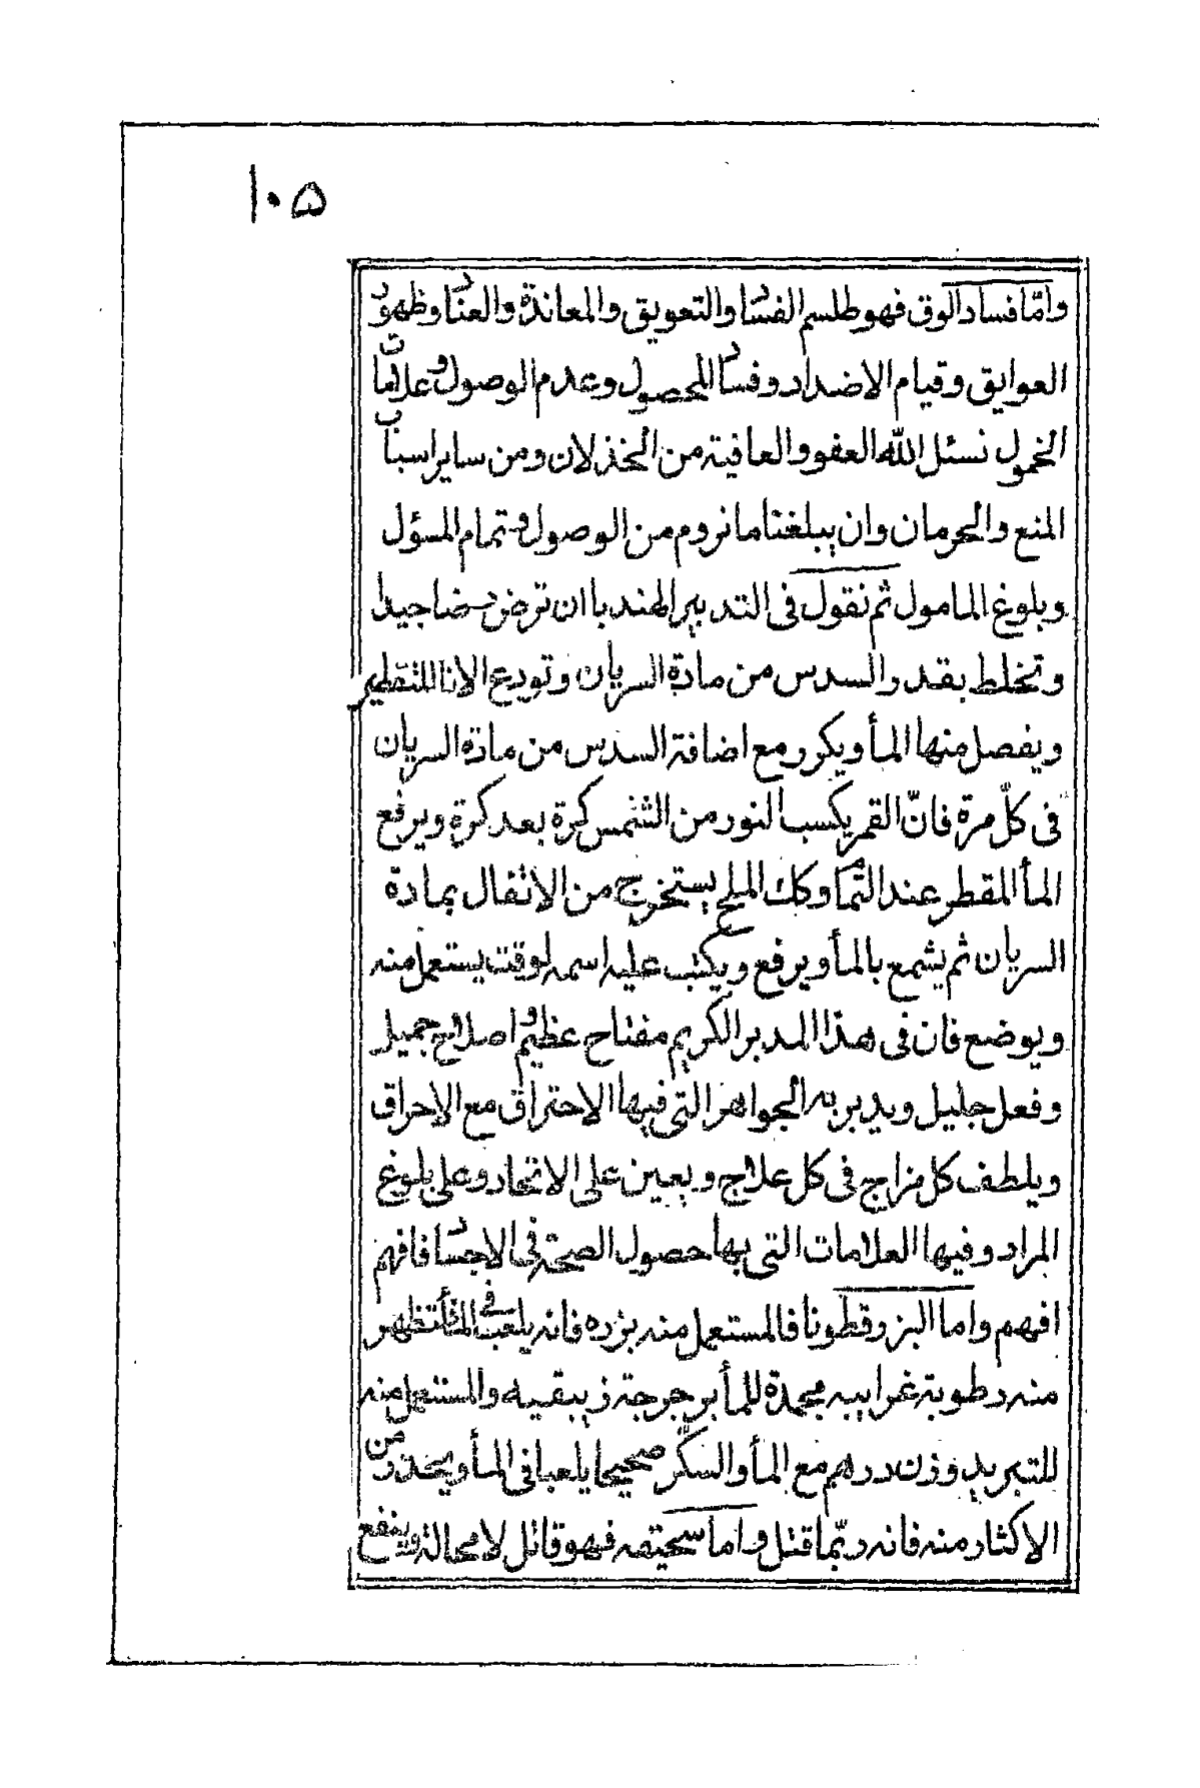 ۱۰۵
وامّا فساد الوق فهو طلسم الفساد والتعويق والمعاندة والعناد وظهور
العوايق وقيام الاضداد وفساد المحصول وعدم الوصول وعلامات
الخمول نسئل الله العفو والعافية من الخذلان ومن ساير اسباب
المنع والحرمان وان يبلغنا ما نروم من الوصول وتمام المسؤل
وبلوغ المامول ثم نقول فى التدبير الهندبا ان ترض رضا جيدا
وتخلط بقدر السدس من مادة السريان وتودع الانا للتقطير
ويفصل منها المأ ويكرر مع اضافة السدس من مادة السريان
فى كلّ مرة فانّ القمر يكسب النور من الشمس كرة بعد كرة ويرفع
المأ المقطر عند التمام وكك الملح يستخرج من الاثقال بمادة
السريان ثم يشمع بالمأ ويرفع ويكتب عليه اسمه لوقت يستعمل منه
ويوضع فان فى هذا المدبر الكريم مفتاح عظيم واصلاح جميل
وفعل جليل ويدبر به الجواهر التى فيها الاحتراق مع الاحراق
ويلطف كل مزاج فى كل علاج ويعين على الاتحاد وعلى بلوغ
المراد وفيها العلامات التى بها حصول الصحة فى الاجساد فافهم
افهم واما البزر وقطونا فالمستعمل منه بزره فانه يلعب فى المأ فتظهر
منه رطوبة غرابيه مجمدة للمأ برجرجة زيبقيه والمستعمل منه
للتبريد وزن درهم مع المأ والسكّر صحيحا يلعبا فى المأ ويحذر من
الاكثار منه فانه ربّما قتل واما سحيقه فهو قاتل لا محالة وينفع